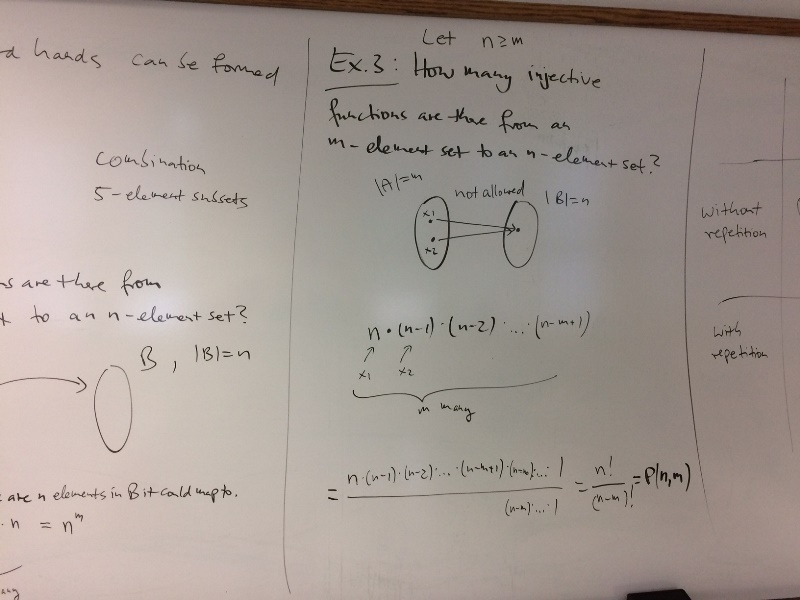 hands can be formed
combination
5-element subsets
are there from
to an n-element set?
B , |B|=n
are n elements in B it could map to.
· n = n^m
Let n≥m
Ex.3: How many injective
functions are there from an
m-element set to an n-element set?
|A|=m
not allowed
|B|=n
x1
x2
n · (n-1) · (n-2) · ... · (n-m+1)
x1 x2
m many
= n·(n-1)·(n-2)·...·(n-m+1)·(n-m)·...·1 / (n-m)·...·1 = n! / (n-m)! = P(n,m)
without
repetition
with
repetition